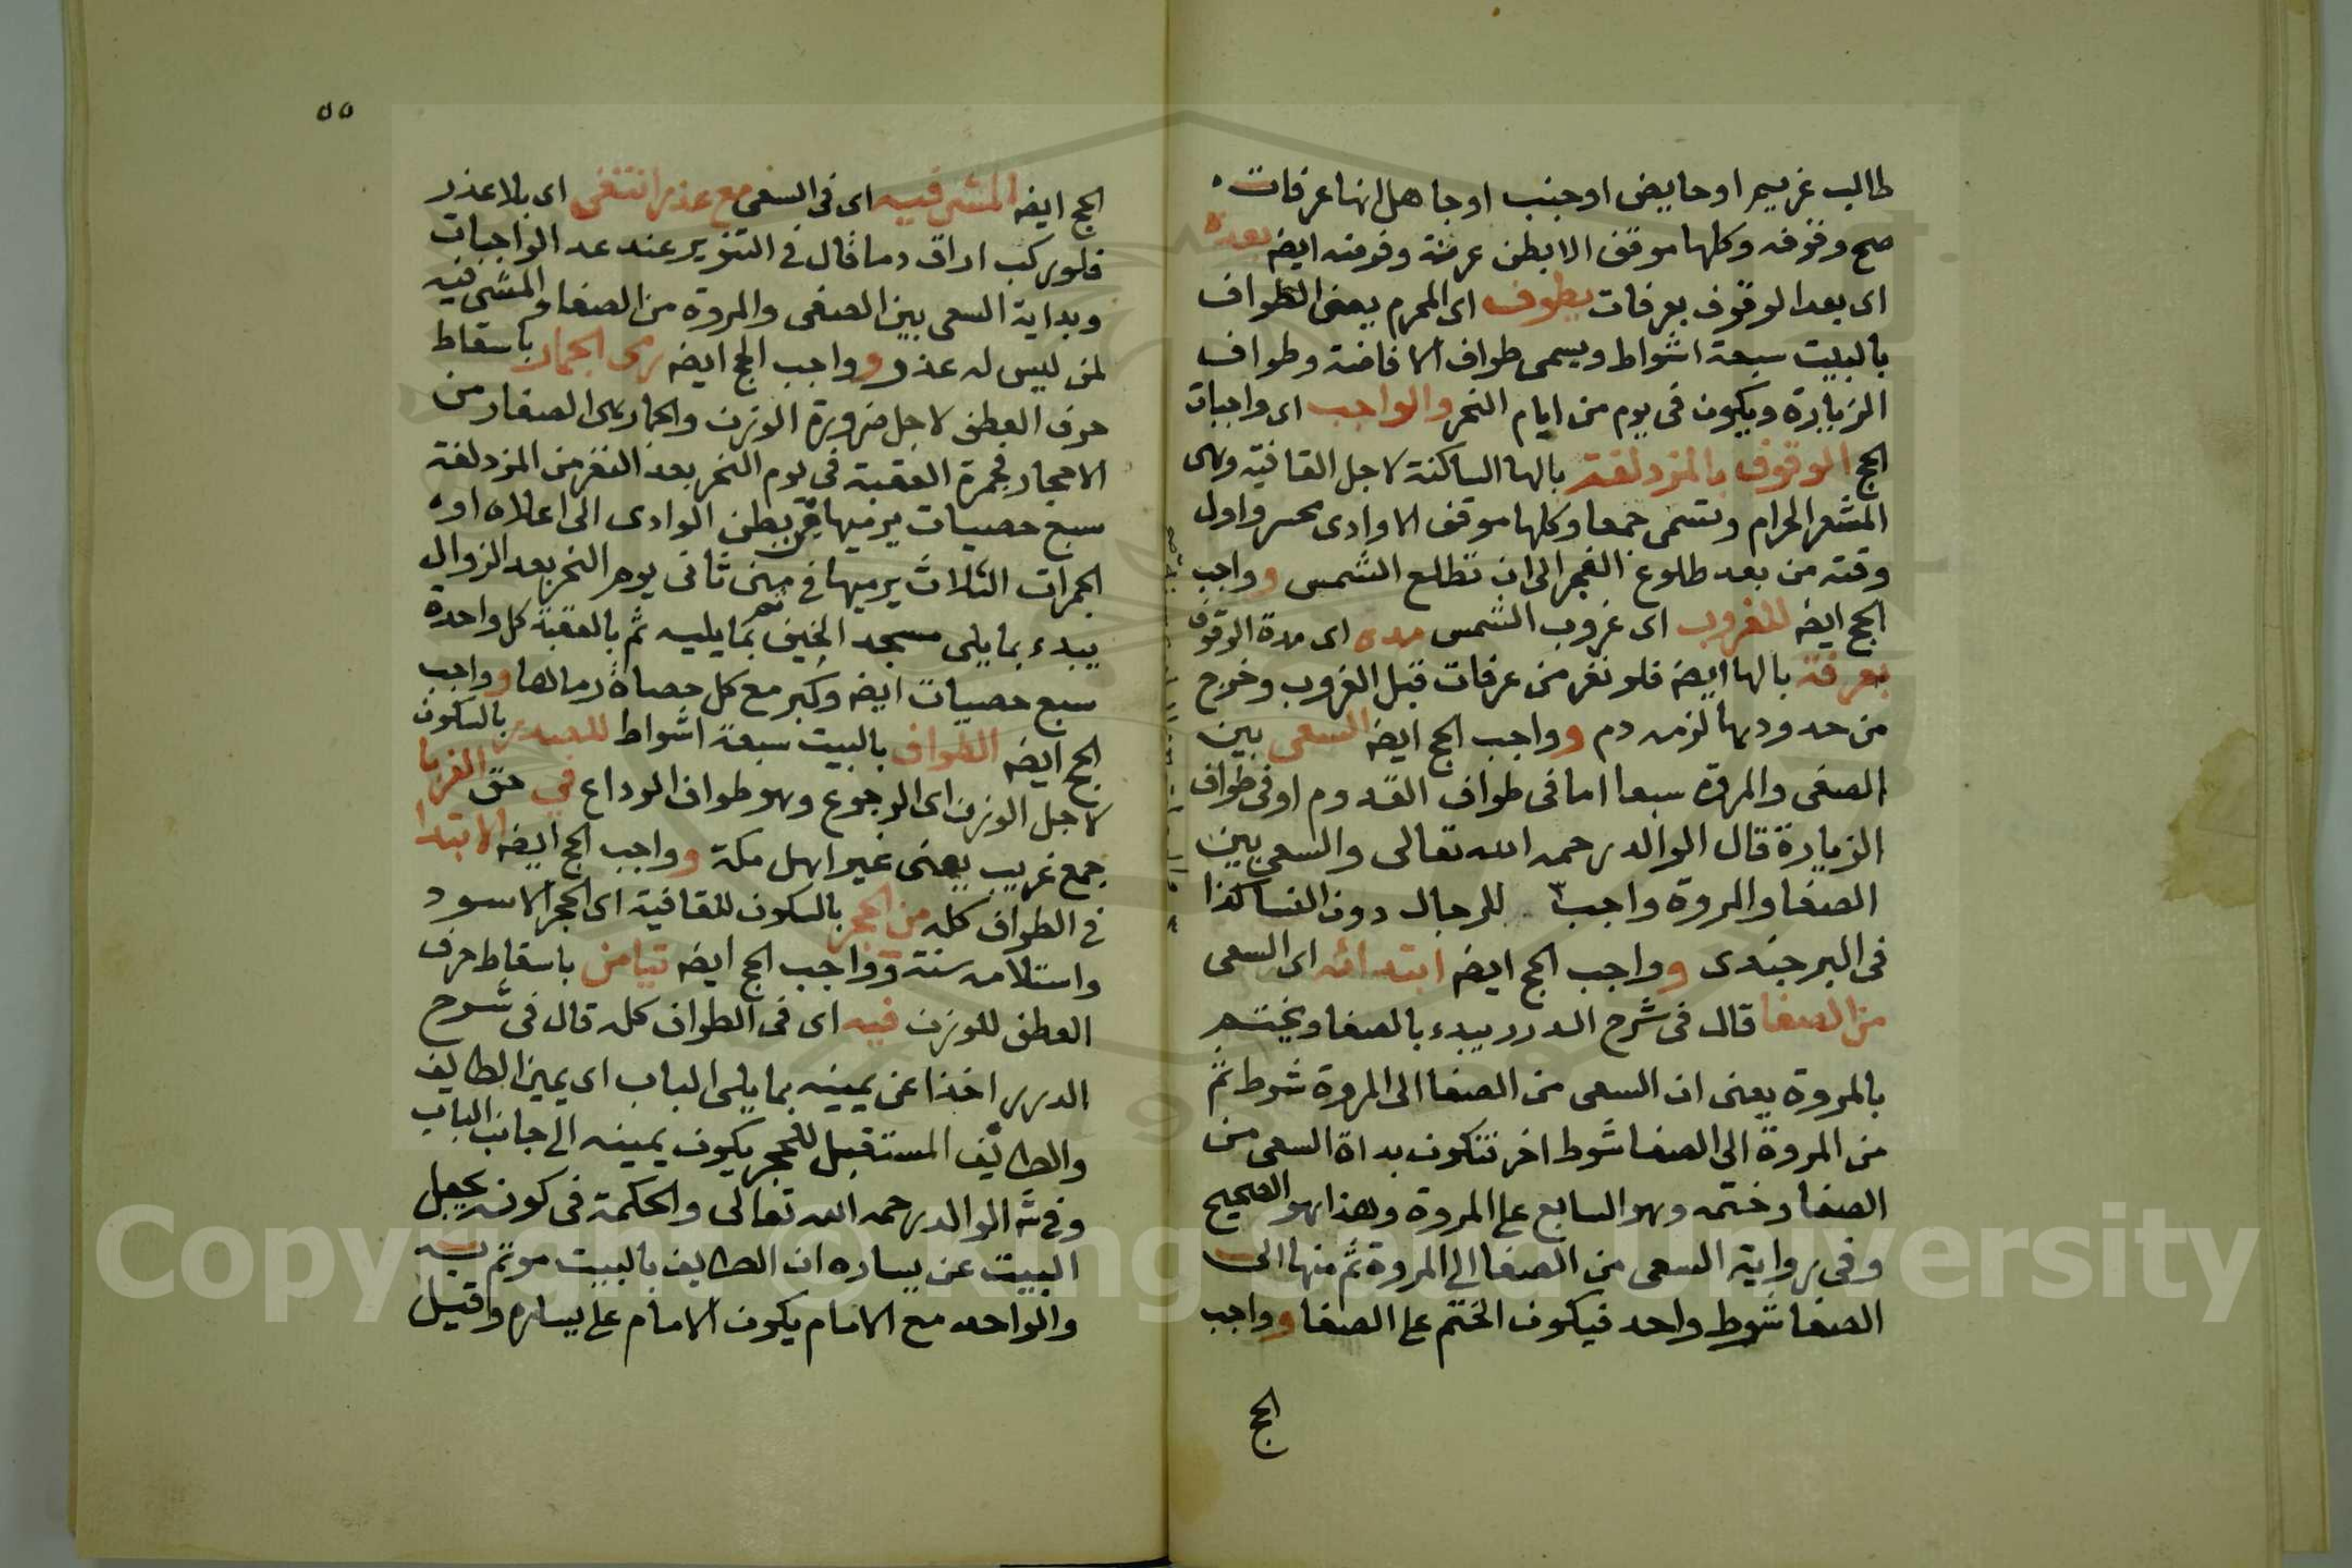 طالب غريم او حايض او جنب او جاهل انها عرفات
صح وقوفه وكلها موقف الا بطن عرنة وفرضه ايضه بعده
اى بعد الوقوف بعرفات يطوف اى المحرم يعنى الطواف
بالبيت سبعة اشواط ويسمى طواف الافاضة وطواف
الزيارة ويكون فى يوم من ايام النحر والواجب اى واجبات
الحج الوقوف بالمزدلفة بالها الساكنة لاجل القافية وهى
المشعر الحرام وتسمى جمعا وكلها موقف الا وادى محسر واول
وقته من بعد طلوع الفجر الى ان تطلع الشمس وواجب
الحج ايضه للغروب اى غروب الشمس مده اى مدة الوقوف
بعرفة بالها ايضه فلو نفر من عرفات قبل الغروب وخرج
من حدودها لزمه دم وواجب الحج ايضه السعى بين
الصفى والمروة سبعا اما فى طواف القدوم او فى طواف
الزيارة قال الوالد رحمه الله تعالى والسعى بين
الصفا والمروة واجب للرجال دون النسا كذا
فى البرجندى وواجب الحج ايضه ابتدائه اى السعى
من الصفا قال فى شرح الدرر يبدء بالصفا ويختم
بالمروة يعنى ان السعى من الصفا الى المروة شوط ثم
من المروة الى الصفا شوط اخر فتكون بداة السعى من
الصفا وختمه وهو السابع على المروة وهذا هو الصحيح
وفى رواية السعى من الصفا الى المروة ثم منها الى
الصفا شوط واحد فيكون الختم على الصفا وواجب
الحج
٥٥
الحج ايضه المشى فيه اى فى السعى مع عذر انتفى اى بلا عذر
فلو ركب اراق دما قال فى التنوير عند عد الواجبات
وبداية السعى بين الصفى والمروة من الصفا والمشى فيه
لمن ليس له عذر وواجب الحج ايضه رمى الجمار باسقاط
حرف العطف لاجل ضرورة الوزن والجمار هى الصغار من
الاحجار فجمرة العقبة فى يوم النحر بعد النفر من المزدلفة
سبع حصيات يرميها من بطن الوادى الى اعلاه او
الجمرات الثلاث يرميها فى منى ثانى يوم النحر بعد الزوال
يبدء بما يلى مسجد الخيف ثم بما يليه ثم بالعقبة كل واحدة
سبع حصيات ايضه وكبر مع كل حصاة رماها وواجب
الحج ايضه الطواف بالبيت سبعة اشواط للصدر بالسكون
لاجل الوزن اى الرجوع وهو طواف الوداع فى حق الغربا
جمع غريب يعنى غير اهل مكة وواجب الحج ايضه الابتدا
فى الطواف كله من الحجر بالسكون للقافية اى الحجر الاسود
واستلامه سنة وواجب الحج ايضه تيامن باسقاط حرف
العطف للوزن فيه اى فى الطواف كله قال فى شرح
الدرر اخذا عن يمينه بما يلى الباب اى يمين الطايف
والطايف المستقبل للحجر يكون يمينه الى جانب الباب
وفى ش الوالد رحمه الله تعالى والحكمة فى كونه يجعل
البيت عن يساره ان الطايف بالبيت موتم به
والواحد مع الامام يكون الامام على يساره وقيل